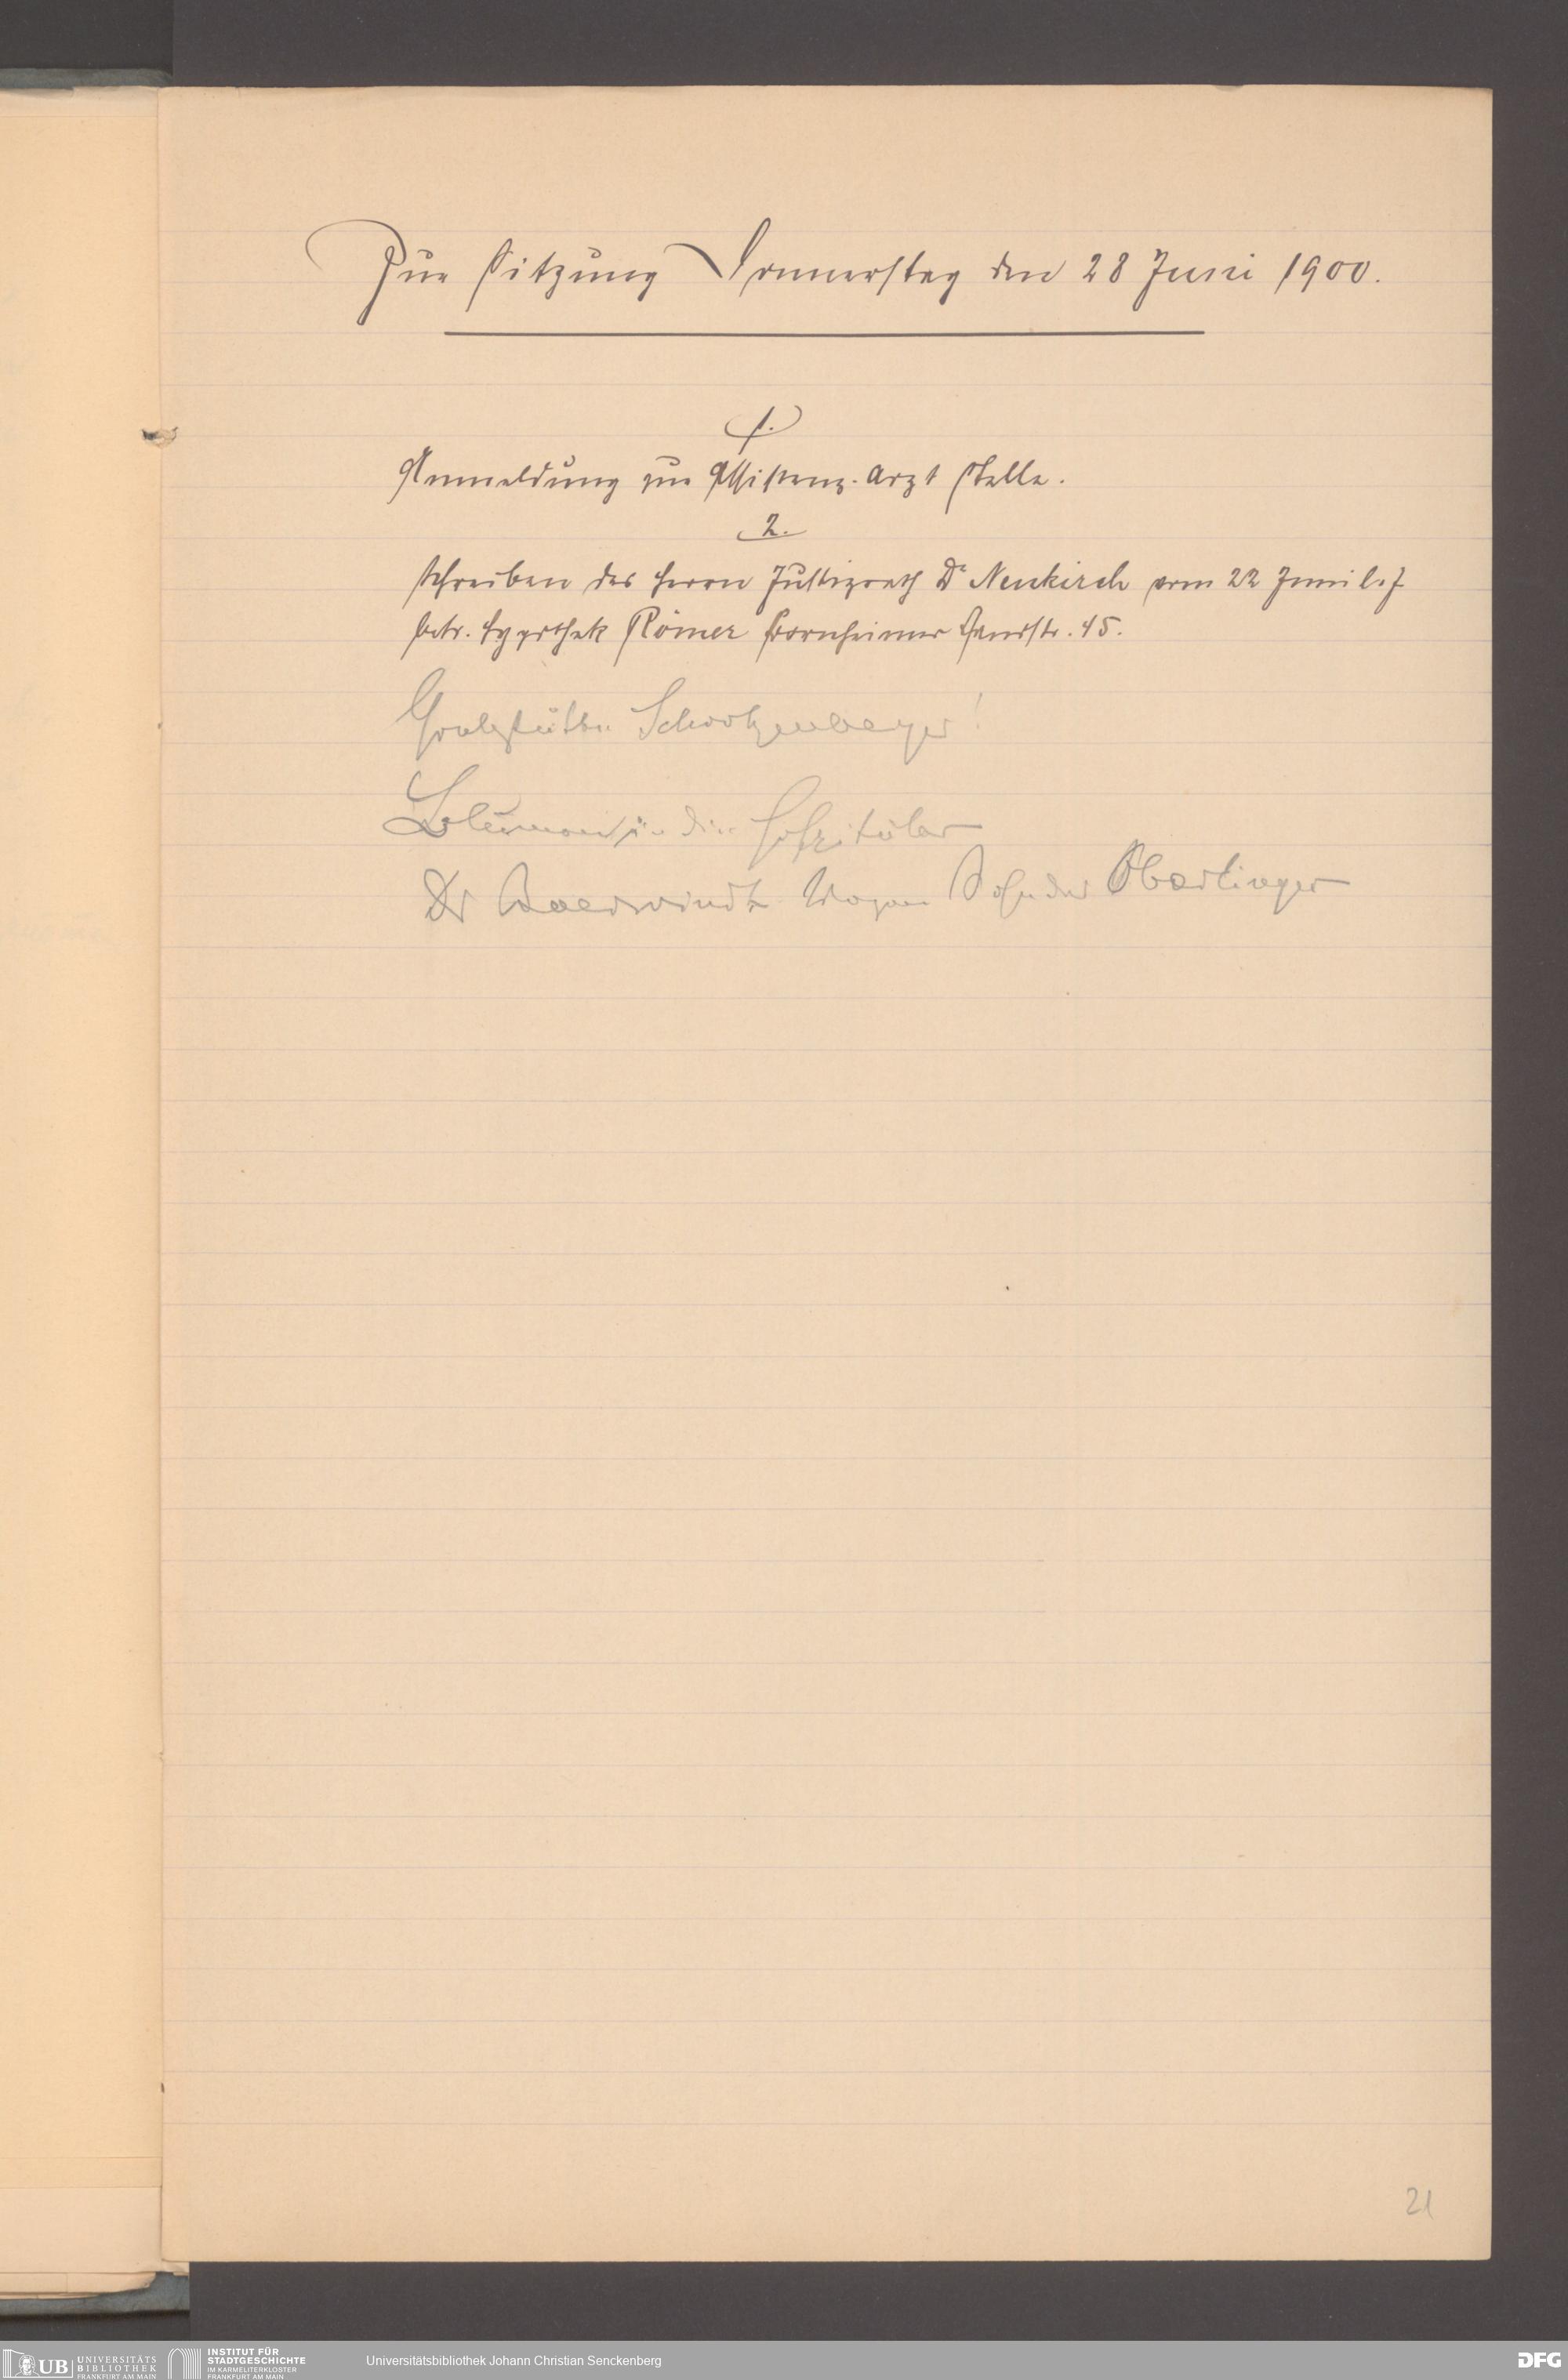 Zur Sitzung Donnerstag den 28 Juni 1900.
1.
Anmeldung zur Assistenz-Arzt Stelle.
2.
Schreiben des Herrn Justizrath Dr Neukirch vom 22 Juni l. J.
betr. Hypothek Römer Bornheimer Landstr. 45.
Grabstätte Schwotzenberger!
Blumen in die Hospitäler
Dr Baerwindt Wagen Oberlinger
21
UB UNIVERSITÄTS
BIBLIOTHEK
FRANKFURT AM MAIN
INSTITUT FÜR
STADTGESCHICHTE
IM KARMELITERKLOSTER
FRANKFURT AM MAIN
Universitätsbibliothek Johann Christian Senckenberg
DFG